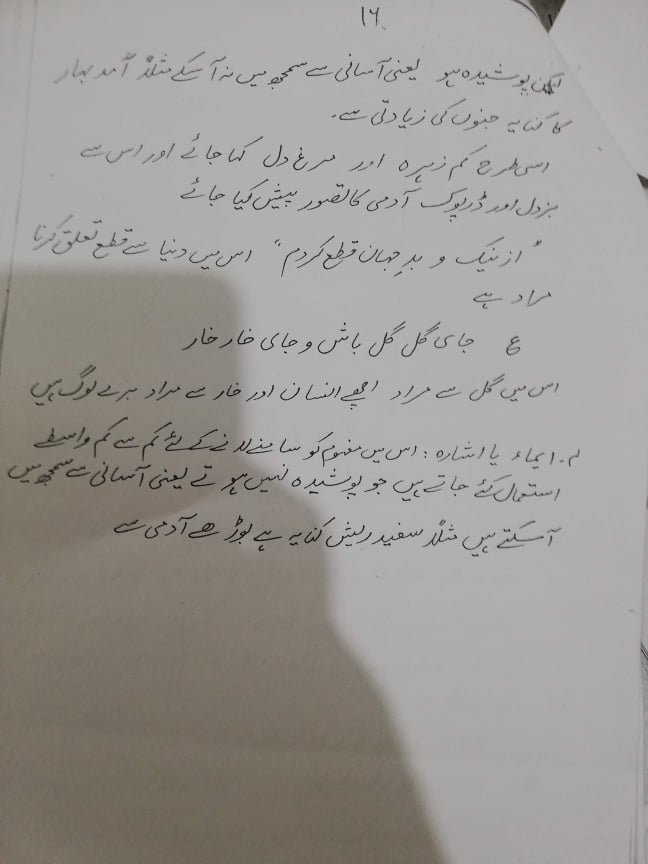 ۱۶
لیکن پوشیدہ ہو یعنی آسانی سے سمجھ میں نہ آ سکے مثلاً آمد بہار
کا کنایہ جنوں کی زیادتی سے۔
اسی طرح کم زہرہ اور مرغ دل کہا جائے اور اس سے
بزدل اور ڈرپوک آدمی کا تصور پیش کیا جائے
"از نیک و بدِ جہان قطع کردم" اس میں دنیا سے قطع تعلق کرنا
مراد ہے
ع جای گل گل باش و جای خار خار
اس میں گل سے مراد اچھے انسان اور خار سے مراد برے لوگ ہیں
۴۔ ایماء یا اشارہ : اس میں مفہوم کو سامنے لانے کے لئے کم سے کم واسطے
استعمال کئے جاتے ہیں جو پوشیدہ نہیں ہوتے یعنی آسانی سے سمجھ میں
آ سکتے ہیں مثلاً سفید ریش کنایہ ہے بوڑھے آدمی سے